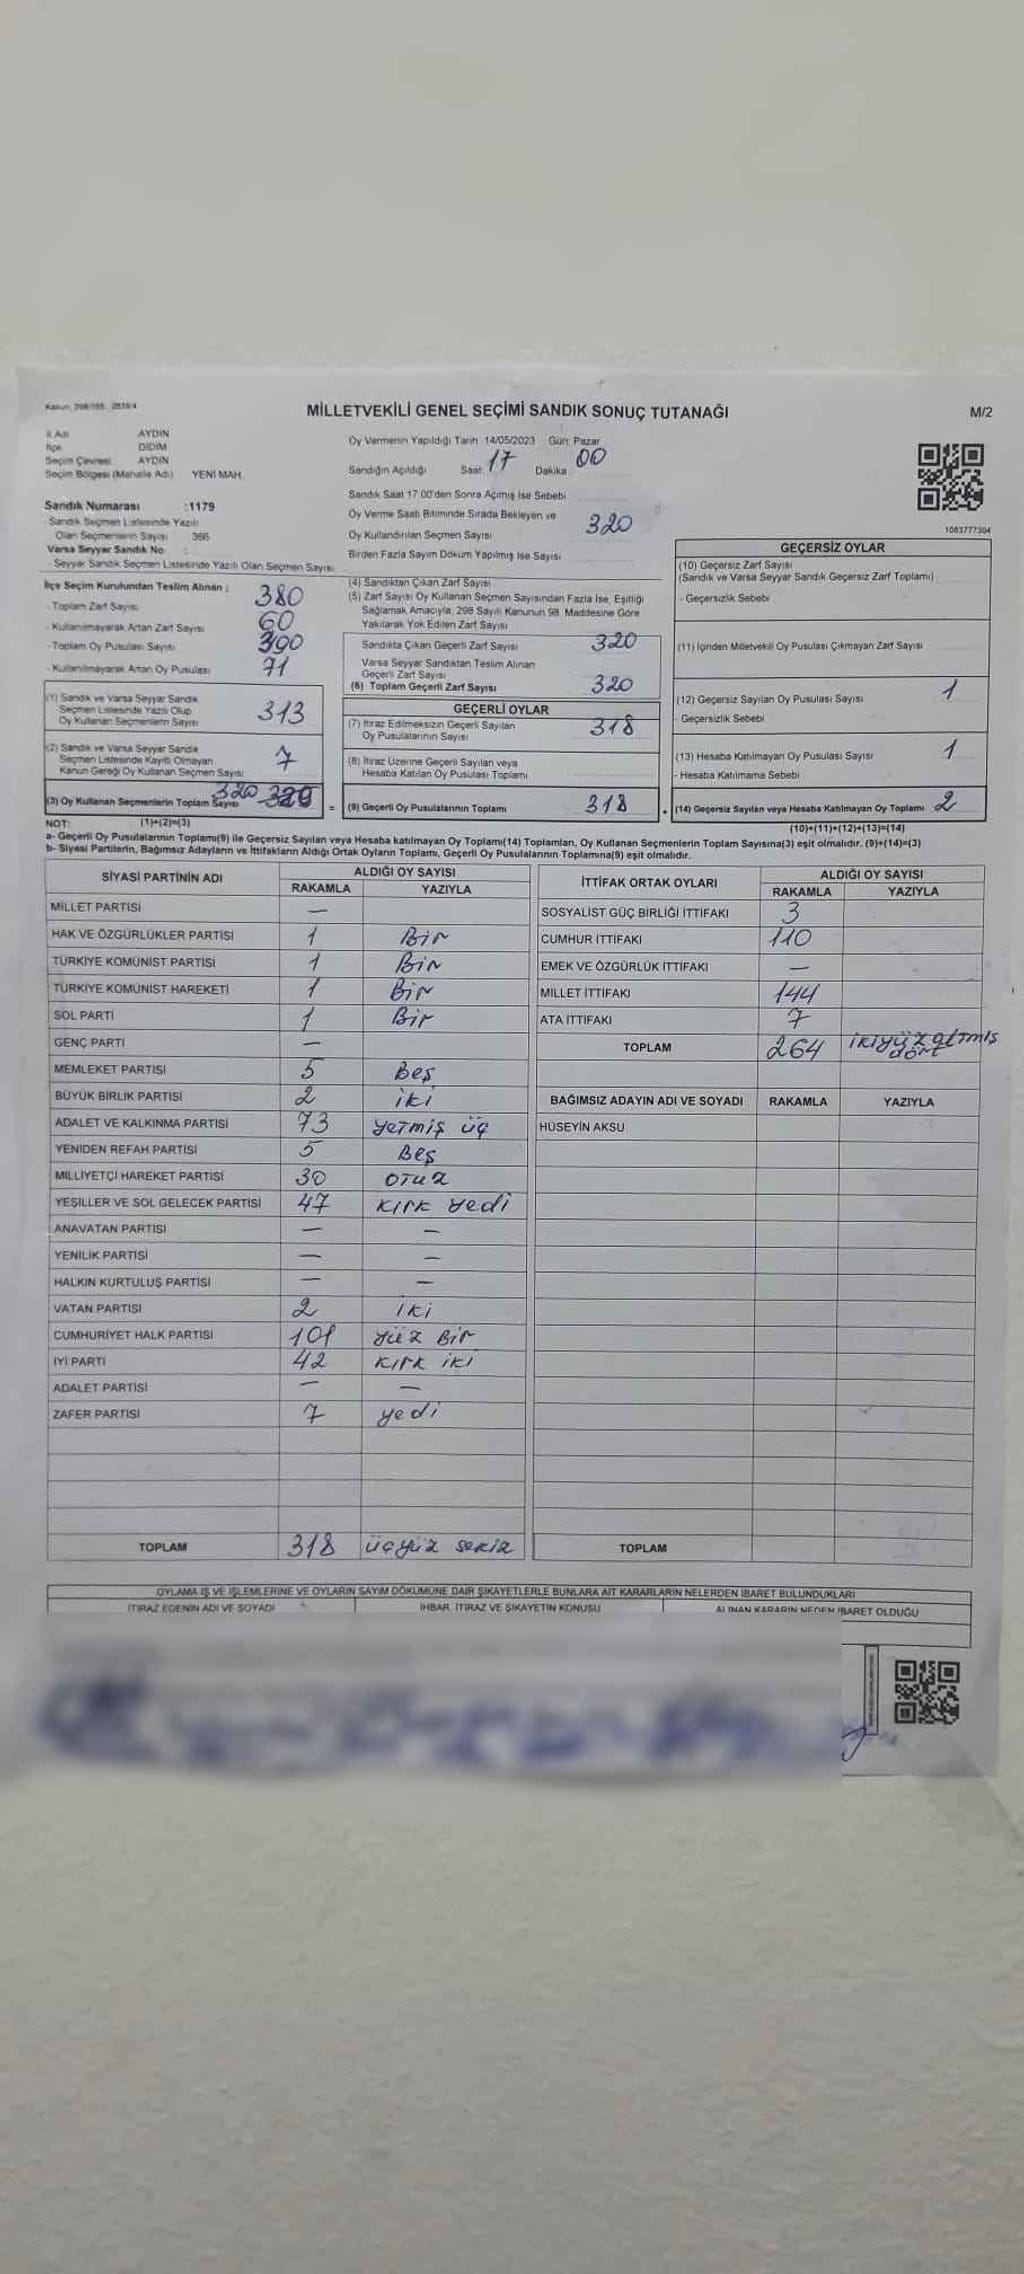 Kanun: 298/105 2839/4
MİLLETVEKİLİ GENEL SEÇİMİ SANDIK SONUÇ TUTANAĞI
M/2
İl Adı AYDIN
İlçe DİDİM
Seçim Çevresi AYDIN
Seçim Bölgesi (Mahalle Adı) YENİ MAH.
Sandık Numarası :1179
- Sandık Seçmen Listesinde Yazılı
Olan Seçmenlerin Sayısı 366
Varsa Seyyar Sandık No :
- Seyyar Sandık Seçmen Listesinde Yazılı Olan Seçmen Sayısı
Oy Vermenin Yapıldığı Tarih 14/05/2023 Gün: Pazar
Sandığın Açıldığı Saat 17 Dakika 00
Sandık Saat 17.00'den Sonra Açılmış İse Sebebi
Oy Verme Saati Bitiminde Sırada Bekleyen ve
Oy Kullandırılan Seçmen Sayısı 320
Birden Fazla Sayım Döküm Yapılmış İse Sayısı
1083777304
İlçe Seçim Kurulundan Teslim Alınan ;
- Toplam Zarf Sayısı 380
- Kullanılmayarak Artan Zarf Sayısı 60
- Toplam Oy Pusulası Sayısı 390
- Kullanılmayarak Artan Oy Pusulası 71
(1) Sandık ve Varsa Seyyar Sandık
Seçmen Listesinde Yazılı Olup
Oy Kullanan Seçmenlerin Sayısı 313
(2) Sandık ve Varsa Seyyar Sandık
Seçmen Listesinde Kayıtlı Olmayan
Kanun Gereği Oy Kullanan Seçmen Sayısı 7
(3) Oy Kullanan Seçmenlerin Toplam Sayısı 320 320 =
(4) Sandıktan Çıkan Zarf Sayısı
(5) Zarf Sayısı Oy Kullanan Seçmen Sayısından Fazla İse, Eşitliği
Sağlamak Amacıyla, 298 Sayılı Kanunun 98. Maddesine Göre
Yakılarak Yok Edilen Zarf Sayısı
Sandıkta Çıkan Geçerli Zarf Sayısı 320
Varsa Seyyar Sandıktan Teslim Alınan
Geçerli Zarf Sayısı
(6) Toplam Geçerli Zarf Sayısı 320
GEÇERLİ OYLAR
(7) İtiraz Edilmeksizin Geçerli Sayılan
Oy Pusulalarının Sayısı 318
(8) İtiraz Üzerine Geçerli Sayılan veya
Hesaba Katılan Oy Pusulası Toplamı
(9) Geçerli Oy Pusulalarının Toplamı 318 +
GEÇERSİZ OYLAR
(10) Geçersiz Zarf Sayısı
(Sandık ve Varsa Seyyar Sandık Geçersiz Zarf Toplamı)
- Geçersizlik Sebebi
(11) İçinden Milletvekili Oy Pusulası Çıkmayan Zarf Sayısı
(12) Geçersiz Sayılan Oy Pusulası Sayısı 1
- Geçersizlik Sebebi
(13) Hesaba Katılmayan Oy Pusulası Sayısı 1
- Hesaba Katılmama Sebebi
(14) Geçersiz Sayılan veya Hesaba Katılmayan Oy Toplamı 2
NOT: (1)+(2)=(3)
(10)+(11)+(12)+(13)=(14)
a- Geçerli Oy Pusulalarının Toplamı(9) ile Geçersiz Sayılan veya Hesaba katılmayan Oy Toplamı(14) Toplamları, Oy Kullanan Seçmenlerin Toplam Sayısına(3) eşit olmalıdır. (9)+(14)=(3)
b- Siyasi Partilerin, Bağımsız Adayların ve İttifakların Aldığı Ortak Oyların Toplamı, Geçerli Oy Pusulalarının Toplamına(9) eşit olmalıdır.
SİYASİ PARTİNİN ADI
ALDIĞI OY SAYISI
RAKAMLA YAZIYLA
MİLLET PARTİSİ —
HAK VE ÖZGÜRLÜKLER PARTİSİ 1 Bir
TÜRKİYE KOMÜNİST PARTİSİ 1 Bir
TÜRKİYE KOMÜNİST HAREKETİ 1 Bir
SOL PARTİ 1 Bir
GENÇ PARTİ —
MEMLEKET PARTİSİ 5 Beş
BÜYÜK BİRLİK PARTİSİ 2 iki
ADALET VE KALKINMA PARTİSİ 73 yetmiş üç
YENİDEN REFAH PARTİSİ 5 Beş
MİLLİYETÇİ HAREKET PARTİSİ 30 otuz
YEŞİLLER VE SOL GELECEK PARTİSİ 47 kırk yedi
ANAVATAN PARTİSİ — —
YENİLİK PARTİSİ — —
HALKIN KURTULUŞ PARTİSİ — —
VATAN PARTİSİ 2 iki
CUMHURİYET HALK PARTİSİ 101 yüz Bir
İYİ PARTİ 42 kırk iki
ADALET PARTİSİ — —
ZAFER PARTİSİ 7 yedi
TOPLAM 318 üçyüz sekiz
İTTİFAK ORTAK OYLARI
ALDIĞI OY SAYISI
RAKAMLA YAZIYLA
SOSYALİST GÜÇ BİRLİĞİ İTTİFAKI 3
CUMHUR İTTİFAKI 110
EMEK VE ÖZGÜRLÜK İTTİFAKI —
MİLLET İTTİFAKI 144
ATA İTTİFAKI 7
TOPLAM 264 ikiyüz altmış
dört
BAĞIMSIZ ADAYIN ADI VE SOYADI RAKAMLA YAZIYLA
HÜSEYİN AKSU
TOPLAM
OYLAMA İŞ VE İŞLEMLERİNE VE OYLARIN SAYIM DÖKÜMÜNE DAİR ŞİKAYETLERLE BUNLARA AİT KARARLARIN NELERDEN İBARET BULUNDUKLARI
İTİRAZ EDENİN ADI VE SOYADI İHBAR, İTİRAZ VE ŞİKAYETİN KONUSU ALINAN KARARIN NEDEN İBARET OLDUĞU